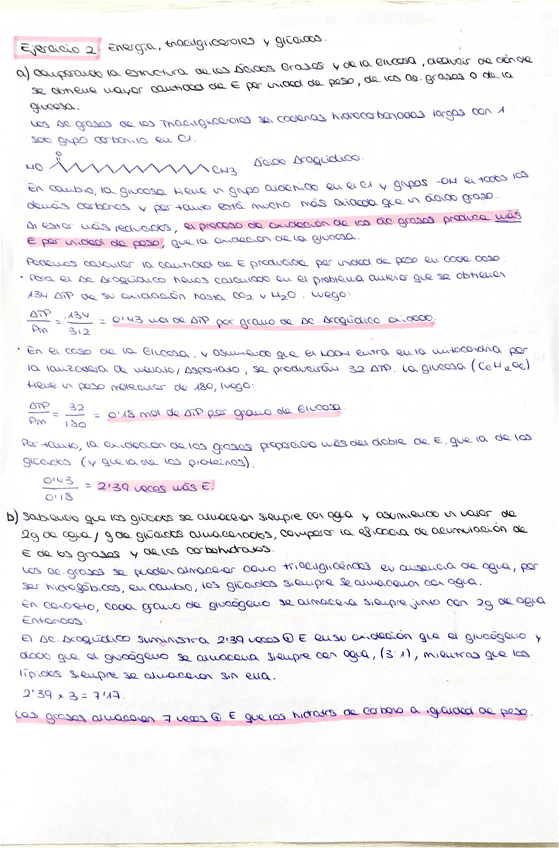 Ejercicio 2: Energía, triacilgliceroles y glúcidos.
a) Comparando la estructura de los Ácidos Grasos y de la Glucosa, deducir de dónde
se obtiene mayor cantidad de E por unidad de peso, de los ac. grasos o de la
glucosa.
Los Ac grasos de los Triacilgliceroles son cadenas hidrocarbonadas largas con 1
solo grupo carbonilo en C1.
O
HO CH3 Ácido Araquídico.
En cambio, la glucosa tiene un grupo aldehído en el C1 y grupos -OH en todos los
demás carbonos y por tanto está mucho más oxidada que un ácido graso.
Al estar más reducidos, el proceso de oxidación de los ac grasos produce más
E por unidad de peso, que la oxidación de la glucosa.
Podemos calcular la cantidad de E producida por unidad de peso en cada caso.
· Para el Ac Araquídico hemos calculado en el problema anterior que se obtienen
134 ATP de su oxidación hasta CO2 y H2O. Luego:
ATP/Pm = 134/312 = 0'43 mol de ATP por gramo de Ac. Araquídico oxidado.
· En el caso de la Glucosa, y asumiendo que el NADH entra en la mitocondria por
la lanzadera de malato/Aspartato, se producirán 32 ATP. La glucosa (C6H12O6)
tiene un peso molecular de 180, luego:
ATP/Pm = 32/180 = 0'18 mol de ATP por gramo de Glucosa.
Por tanto, la oxidación de las grasas proporciona más del doble de E. que la de los
glúcidos (y que la de las proteínas).
0'43/0'18 = 2'39 veces más E!
b) Sabiendo que los glúcidos se almacenan siempre con agua y asumiendo un valor de
2g de agua/g de glúcidos almacenados, comparar la eficacia de acumulación de
E de las grasas y de los carbohidratos.
Los ac. grasos se pueden almacenar como triacilglicéridos en ausencia de agua, por
ser hidrofóbicos, en cambio, los glúcidos siempre se almacenan con agua.
En concreto, cada gramo de glucógeno se almacena siempre junto con 2g de agua
Entonces:
El Ac Araquídico suministra 2'39 veces ⊕ E en su oxidación que el glucógeno y
dado que el glucógeno se almacena siempre con agua, (3:1), mientras que los
lípidos siempre se almacenan sin ella.
2'39 x 3 = 7'17.
Las grasas almacenan 7 veces ⊕ E que los hidratos de carbono a igualdad de peso.